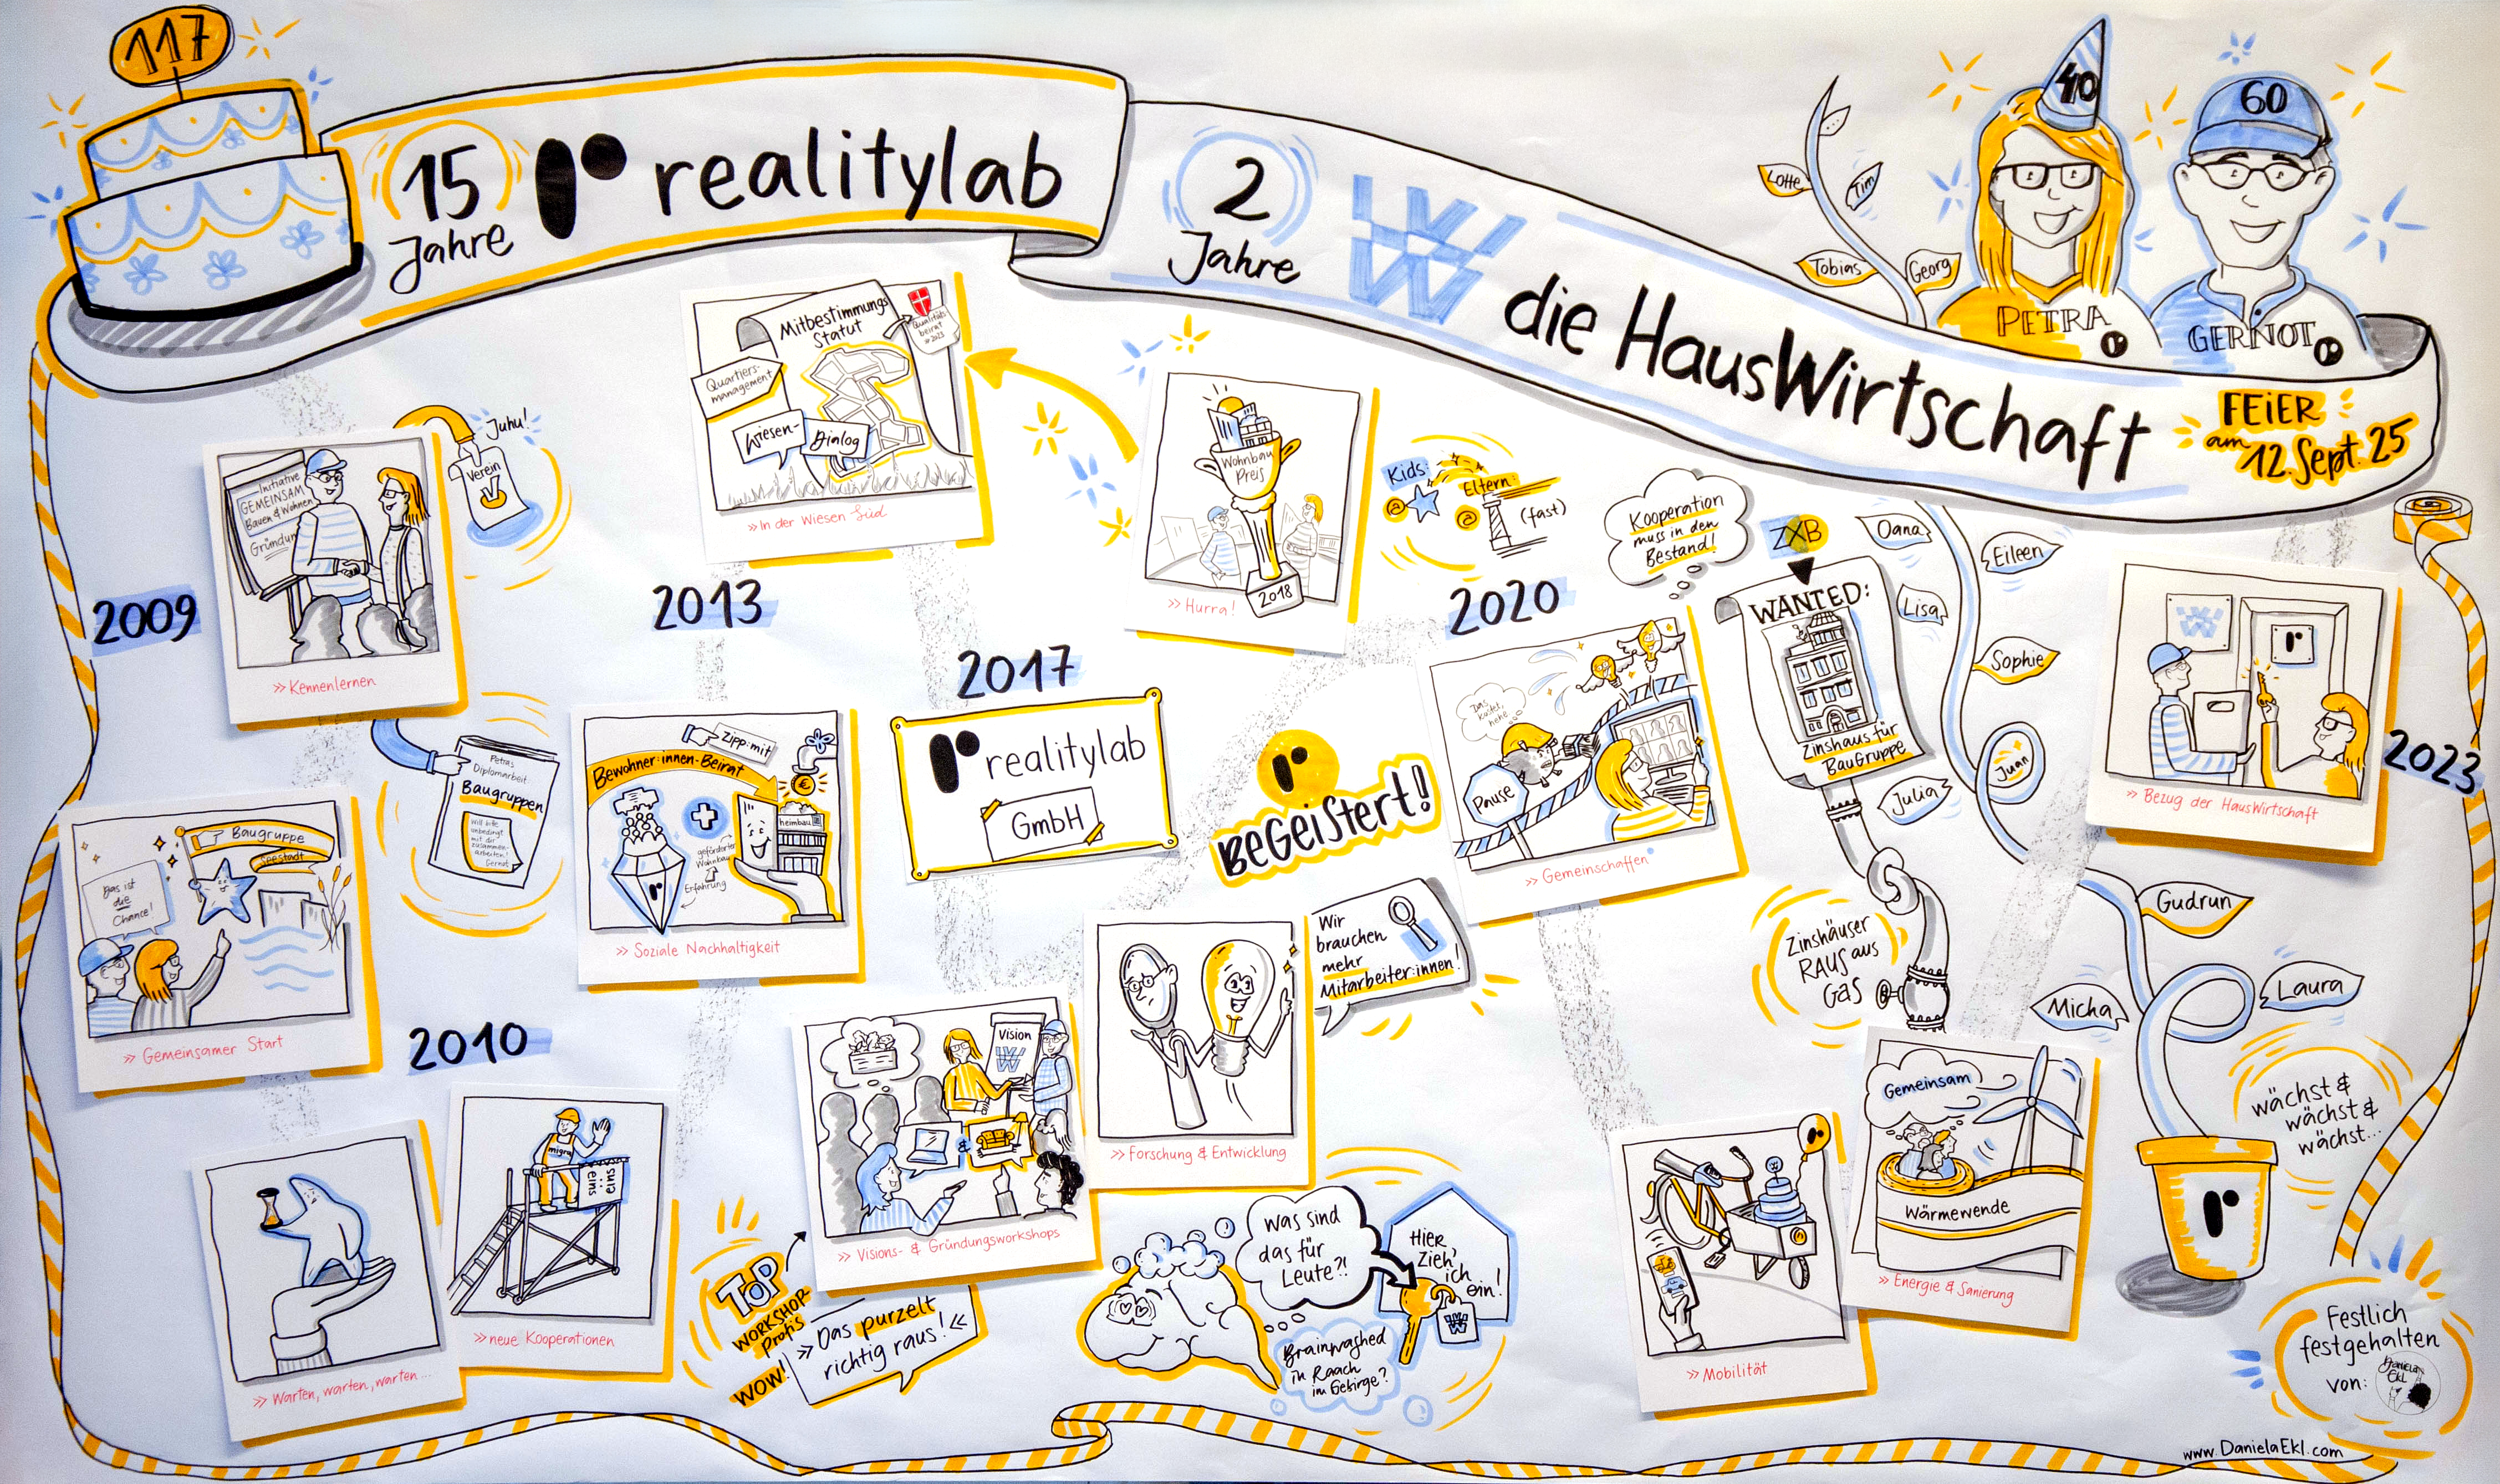 117
15
Jahre
realitylab
2
Jahre
die HausWirtschaft
FEiER
am
12. Sept. 25
40
60
PETRA
GERNOT
Lotte
Tim
Tobias
Georg
2009
Initiative
GEMEINSAM
Bauen & Wohnen
Gründung
>> Kennenlernen
Juhu!
Verein
Petras
Diplomarbeit
Baugruppen
Will bitte
unbedingt
mit dir
zusammen-
arbeiten!
Gernot
Baugruppe
Seestadt
Das ist
die
Chance!
>> Gemeinsamer Start
2010
>> Warten, warten, warten...
migra
so.vie.so
>> neue Kooperationen
2013
Mitbestimmungs
Statut
Qualitäts
beirat
# 2023
Quartiers-
management
Wiesen-
Dialog
>> In der Wiesen Süd
Zipp:mit
Bewohner:innen-Beirat
heimbau
geförderter
Wohnbau
Erfahrung
>> Soziale Nachhaltigkeit
2017
realitylab
GmbH
BeGeiStert!
Wohnbau
Preis
2018
>> Hurra!
Kids:
Eltern:
(fast)
Vision
>> Visions- & Gründungsworkshops
TOP
WORKSHOP
Profis
WOW!
>> Das purzelt
richtig raus! <<
>> Forschung & Entwicklung
Wir
brauchen
mehr
Mitarbeiter:innen!
Was sind
das für
Leute?!
Hier
Zieh'
ich
ein!
Brainwashed
in Raach
im Gebirge?
2020
Kooperation
muss in den
Bestand!
Pause
>> Gemeinschaffen
ZXB
WANTED:
Zinshaus für
BauGruppe
Zinshäuser
RAUS aus
Gas
Gemeinsam
Wärmewende
>> Energie & Sanierung
>> Mobilität
Oana
Eileen
Lisa
Sophie
Juan
Julia
Gudrun
Micha
Laura
2023
>> Bezug der HausWirtschaft
wächst &
wächst &
wächst...
Festlich
festgehalten
von:
Daniela
Ekl
www.DanielaEkl.com